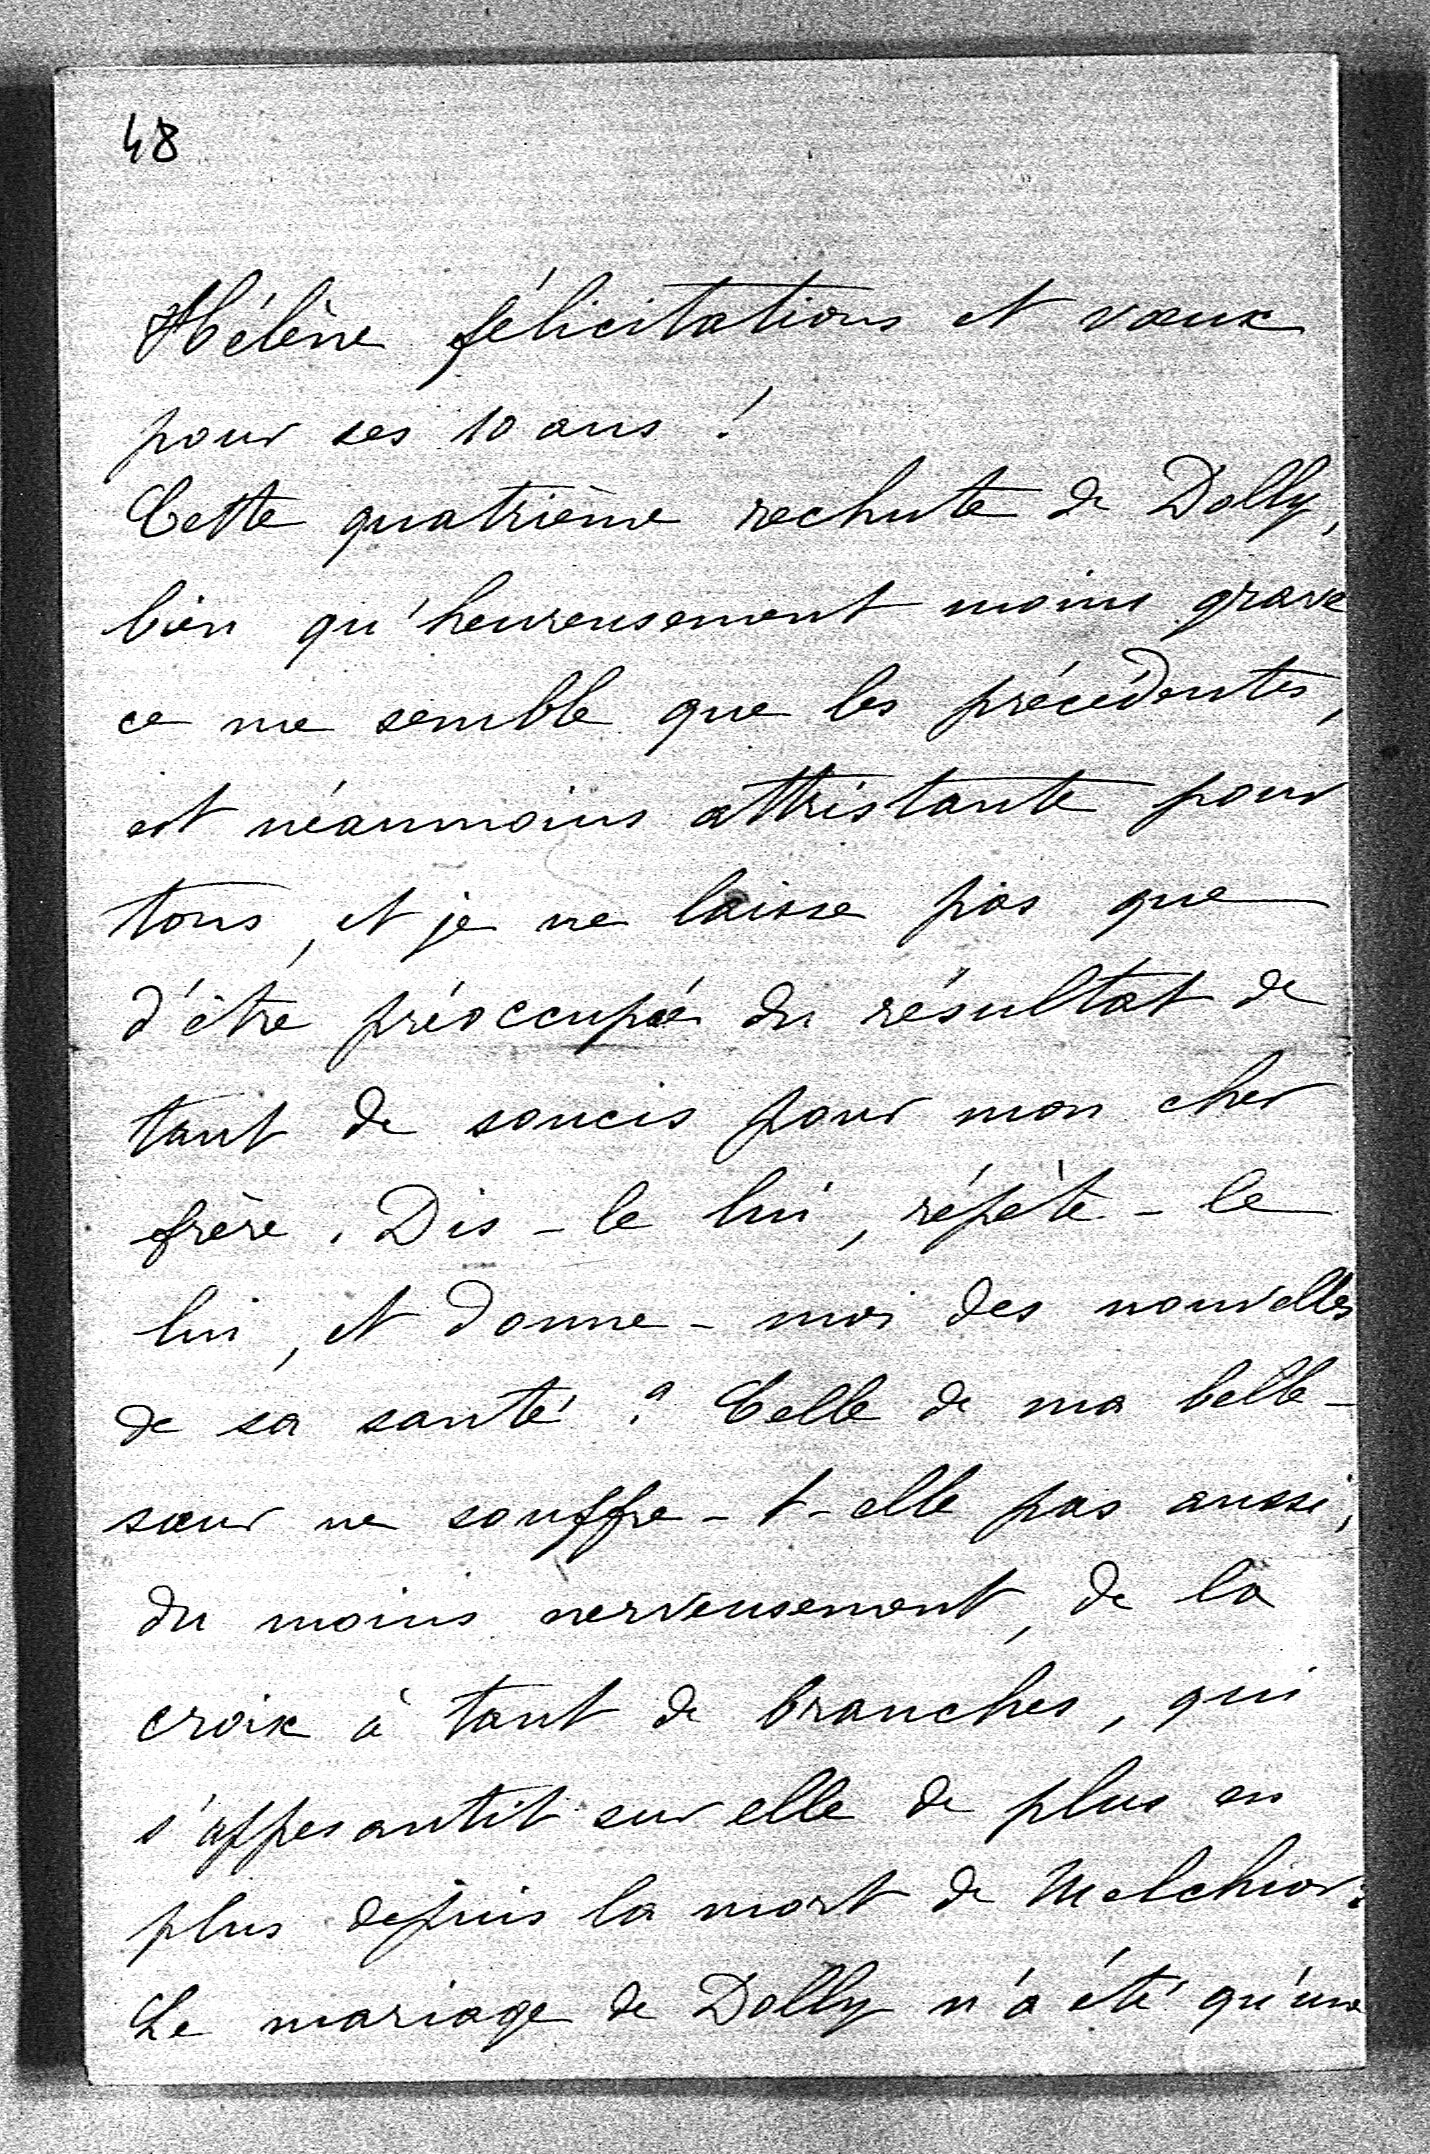 48
Hélène félicitations et vœux
pour ses 10 ans !
Cette quatrième rechute de Dolly,
bien qu'heureusement moins grave
ce me semble que les précédentes,
est néanmoins attristante pour
tous, et je ne laisse pas que
d'être préoccupée du résultat de
tant de soucis pour mon cher
frère. Dis-le lui, répète-le
lui, et donne-moi des nouvelles
de sa santé ? Celle de ma belle-
sœur ne souffre-t-elle pas aussi,
du moins nerveusement, de la
croix à tant de branches, qui
s'appesantit sur elle de plus en
plus depuis la mort de Melchior :
Le mariage de Dolly n'a été qu'une